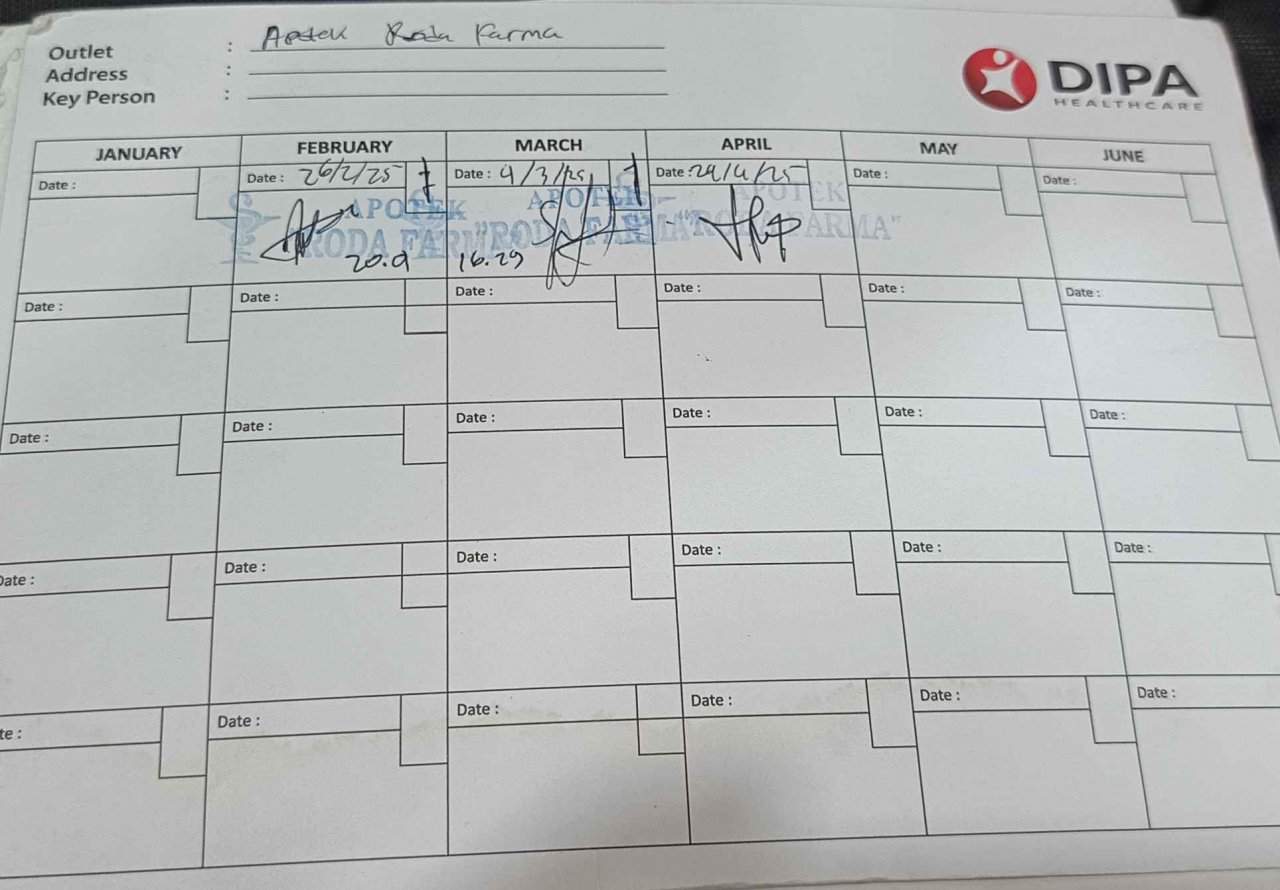 Outlet : Apotek Roda Farma
Address :
Key Person :
DIPA
HEALTHCARE
JANUARY FEBRUARY MARCH APRIL MAY JUNE
Date : Date : 26/2/25 Date : 4/3/25 Date : 29/4/25 Date : Date :
APOTEK APOTEK APOTEK
RODA FARM "RODA FARMA" "RODA FARMA"
20.9 16.29
Date : Date : Date : Date : Date : Date :
Date : Date : Date : Date : Date : Date :
Date : Date : Date : Date : Date : Date :
te : Date : Date : Date : Date : Date :